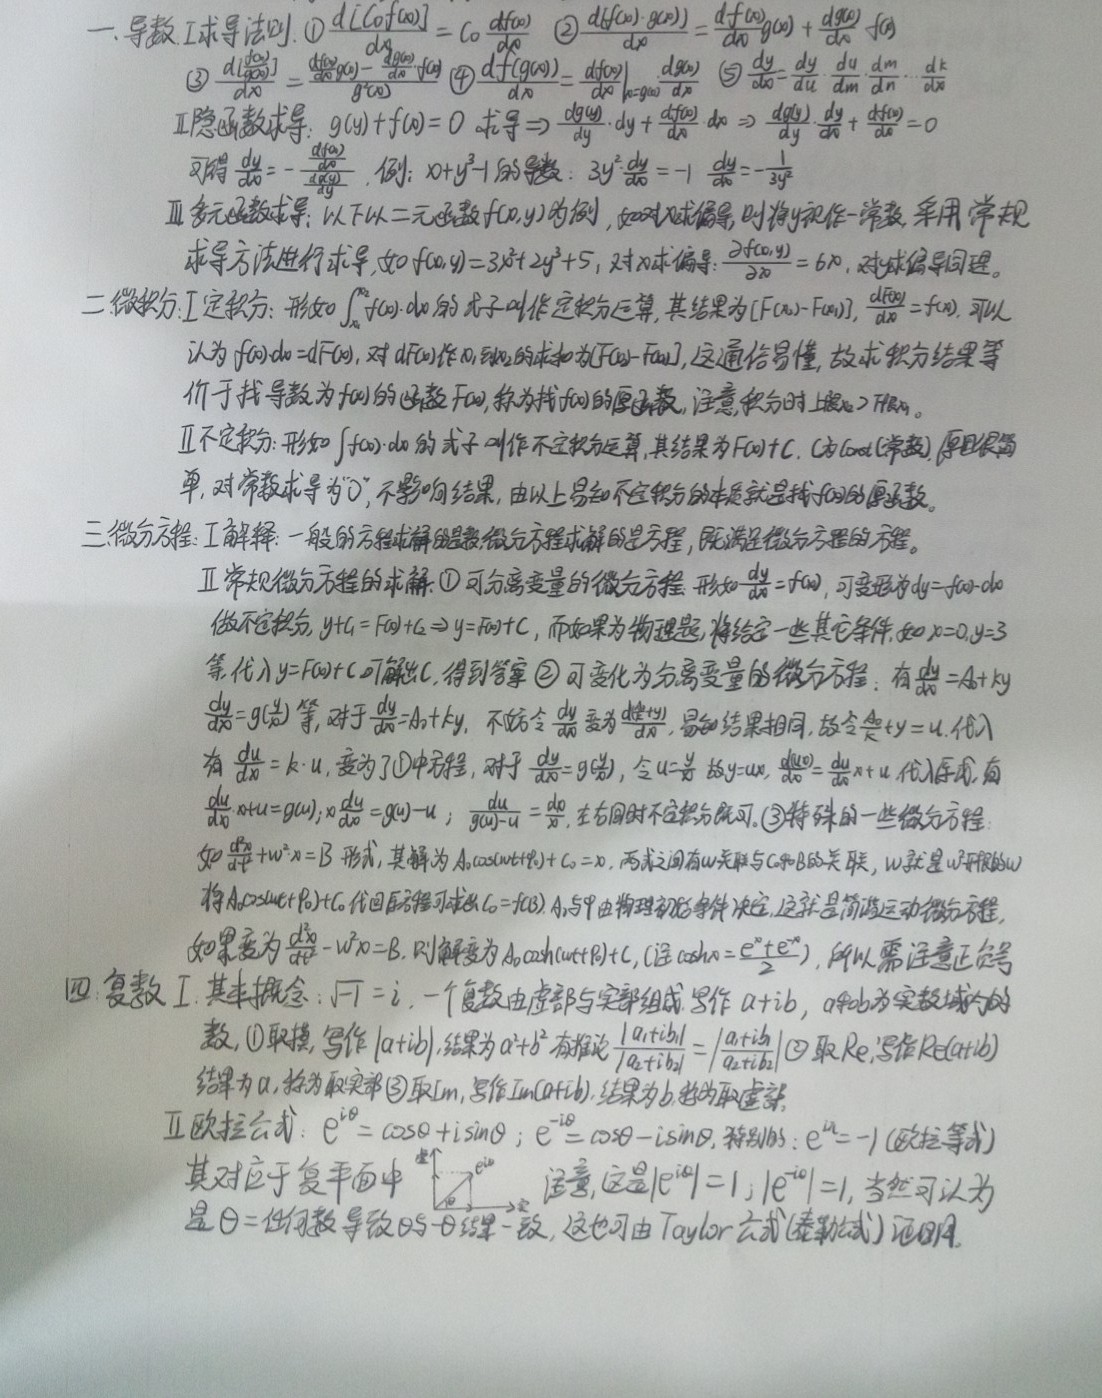 一、导数 I 求导法则. ① d[C₀f(x)]/dx = C₀ df(x)/dx ② d(f(x)·g(x))/dx = df(x)/dx g(x) + dg(x)/dx f(x)
③ d[f(x)/g(x)]/dx = (df(x)/dx g(x) - dg(x)/dx f(x))/g²(x) ④ df(g(x))/dx = df(x)/dx|x=g(x) · dg(x)/dx ⑤ dy/dx = dy/du · du/dm · dm/dn … dk/dx
II 隐函数求导: g(y)+f(x)=0 求导⇒ dg(y)/dy · dy + df(x)/dx · dx ⇒ dg(y)/dy · dy/dx + df(x)/dx = 0
可得 dy/dx = - (df(x)/dx)/(dg(y)/dy). 例: x+y³-1 的导数: 3y²·dy/dx = -1 dy/dx = -1/3y²
III 多元函数求导: 以下以二元函数f(x,y)为例, 如对x求偏导, 则将y视作一常数, 采用常规
求导方法进行求导, 如f(x,y)=3x²+2y³+5, 对x求偏导: ∂f(x,y)/∂x = 6x, 对y求偏导同理。
二.微积分: I 定积分: 形如∫f(x)·dx的式子叫作定积分运算, 其结果为[F(x₂)-F(x₁)], dF(x)/dx = f(x). 可以
认为f(x)·dx=dF(x), 对dF(x)作x₁到x₂的求和为[F(x₂)-F(x₁)], 这通俗易懂, 故求积分结果等
价于找导数为f(x)的函数F(x), 称为找f(x)的原函数, 注意,积分时上限x₂>下限x₁。
II 不定积分: 形如∫f(x)·dx的式子叫作不定积分运算, 其结果为F(x)+C. C为Const(常数), 原因很简
单, 对常数求导为“0”, 不影响结果, 由以上易知不定积分的本质就是找f(x)的原函数。
三.微分方程: I 解释: 一般的方程求解的是数,微分方程求解的是方程, 既满足微分方程的方程。
II 常规微分方程的求解. ① 可分离变量的微分方程. 形如dy/dx=f(x), 可变形为dy=f(x)·dx
做不定积分, y+C₁=F(x)+C₂⇒y=F(x)+C, 而如果为物理题, 将给定一些其它条件, 如x=0,y=3
等,代入y=F(x)+C可解出C, 得到答案 ② 可变化为分离变量的微分方程: 有dy/dx=A₀+ky
dy/dx=g(y/x)等, 对于dy/dx=A₀+ky, 不妨令dy/dx变为d(A₀/k+y)/dx, 易知结果相同, 故令A₀/k+y=u. 代入
有du/dx=k·u, 变为了①中方程, 对于dy/dx=g(y/x), 令u=y/x 故y=ux, d(ux)/dx=du/dx x+u 代入原式, 有
du/dx·x+u=g(u); x du/dx=g(u)-u; du/(g(u)-u)=dx/x, 左右同时不定积分既可. ③ 特殊的一些微分方程:
如d²x/dt²+w²·x=B 形式, 其解为A₀cos(wt+φ₀)+C₀=x, 两式之间有w关联与C₀和B的关联, w就是w²开根的w
将A₀cos(wt+φ₀)+C₀代回原方程可求出C₀=f(B). A₀与φ由物理初始条件决定, 这就是简谐运动微分方程,
如果变为d²x/dt²-w²x=B, 则解变为A₀cosh(wt+φ₀)+C, (注coshx=(eˣ+e⁻ˣ)/2), 所以需注意正负号
四.复数 I. 基本概念: √-1=i, 一个复数由虚部与实部组成,写作a+ib, a和b为实数域内的
数, ①取模, 写作|a+ib|, 结果为a²+b² 有推论|a₁+ib₁|/|a₂+ib₂|=|(a₁+ib₁)/(a₂+ib₂)| ② 取Re, 写作Re(a+ib)
结果为a, 称为取实部 ③取Im, 写作Im(a+ib), 结果为b, 称为取虚部.
II 欧拉公式: e^iθ=cosθ+isinθ; e^-iθ=cosθ-isinθ, 特别的: e^iπ=-1 (欧拉等式)
其对应于复平面中 虚 e^iθ θ 实 注意, 这是|e^iθ|=1; |e^-iθ|=1, 当然可认为
是θ=任何数导致θ与-θ结果一致, 这也可由Taylor公式(泰勒公式)证明.